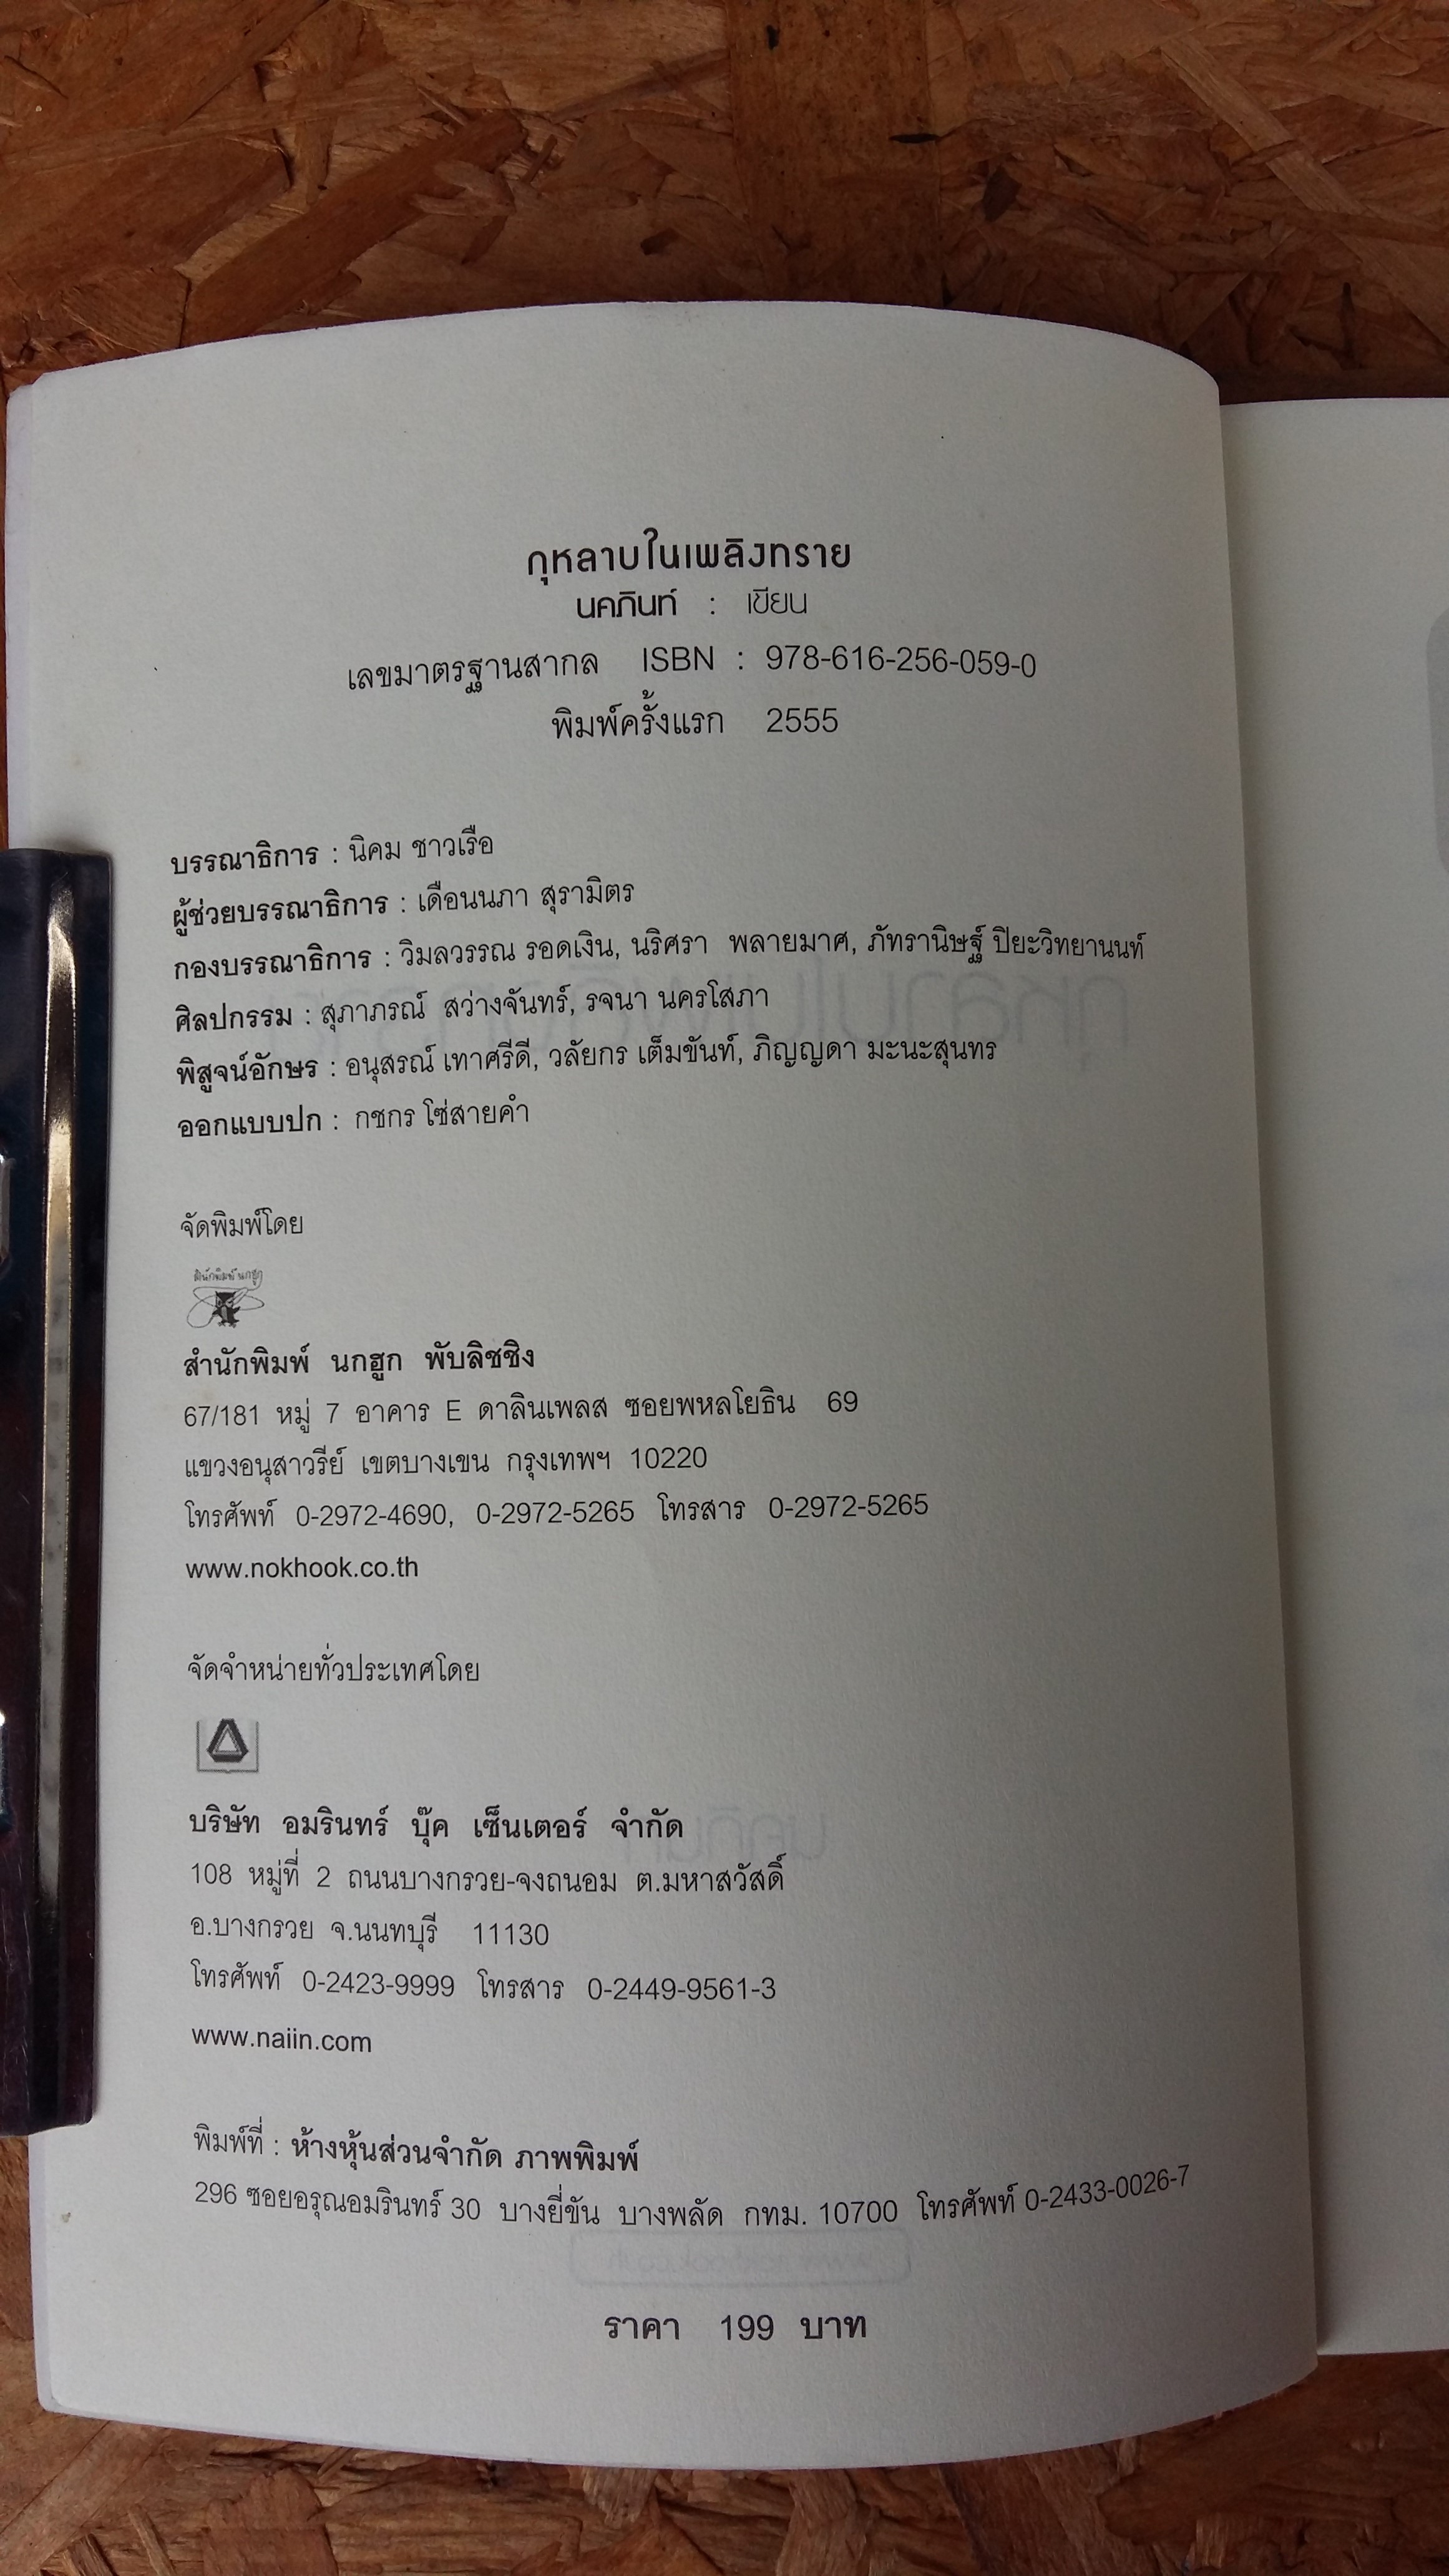 กุหลาบในเพลิงทราย
นคภินท์ : เขียน
เลขมาตรฐานสากล ISBN : 978-616-256-059-0
พิมพ์ครั้งแรก 2555
บรรณาธิการ : นิคม ชาวเรือ
ผู้ช่วยบรรณาธิการ : เดือนนภา สุรามิตร
กองบรรณาธิการ : วิมลวรรณ รอดเงิน, นริศรา พลายมาศ, ภัทรานิษฐ์ ปิยะวิทยานนท์
ศิลปกรรม : สุภาภรณ์ สว่างจันทร์, รจนา นครโสภา
พิสูจน์อักษร : อนุสรณ์ เทาศรีดี, วลัยกร เต็มขันท์, ภิญญดา มะนะสุนทร
ออกแบบปก : กชกร โซ่สายคำ
จัดพิมพ์โดย
สำนักพิมพ์ นกฮูก
สำนักพิมพ์ นกฮูก พับลิชชิง
67/181 หมู่ 7 อาคาร E ดาลินเพลส ซอยพหลโยธิน 69
แขวงอนุสาวรีย์ เขตบางเขน กรุงเทพฯ 10220
โทรศัพท์ 0-2972-4690, 0-2972-5265 โทรสาร 0-2972-5265
www.nokhook.co.th
จัดจำหน่ายทั่วประเทศโดย
บริษัท อมรินทร์ บุ๊ค เซ็นเตอร์ จำกัด
108 หมู่ที่ 2 ถนนบางกรวย-จงถนอม ต.มหาสวัสดิ์
อ.บางกรวย จ.นนทบุรี 11130
โทรศัพท์ 0-2423-9999 โทรสาร 0-2449-9561-3
www.naiin.com
พิมพ์ที่ : ห้างหุ้นส่วนจำกัด ภาพพิมพ์
296 ซอยอรุณอมรินทร์ 30 บางยี่ขัน บางพลัด กทม. 10700 โทรศัพท์ 0-2433-0026-7
ราคา 199 บาท